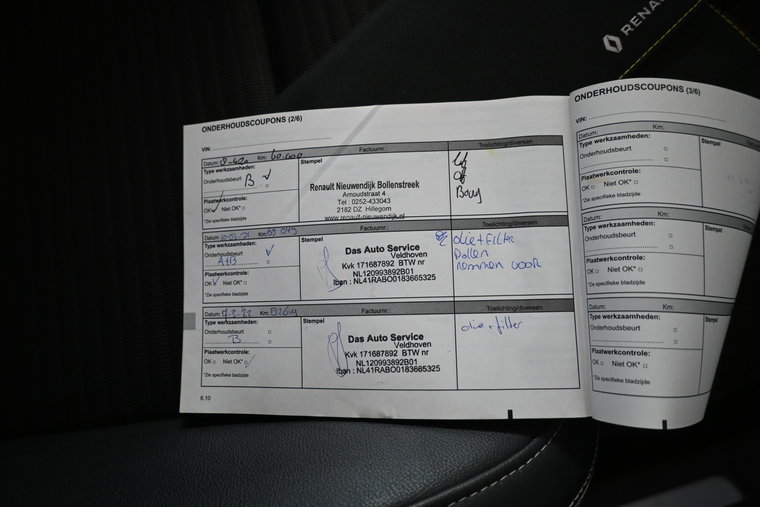 RENAU
ONDERHOUDSCOUPONS (2/6)
VIN:
Datum: Km: 60.000 Factuurnr.: Toelichting/diversen
Type werkzaamheden: Stempel
Onderhoudsbeurt
B
Plaatwerkcontrole:
OK Niet OK*
*Zie specifieke bladzijde
Renault Nieuwendijk Bollenstreek
Arnoudstraat 4
Tel : 0252-433043
2182 DZ Hillegom
www.renault-nieuwendijk.nl
Datum: Km: 69 049 Factuurnr.: Toelichting/diversen
Type werkzaamheden: Stempel
Onderhoudsbeurt
A+B
Plaatwerkcontrole:
OK Niet OK*
*Zie specifieke bladzijde
Das Auto Service
Veldhoven
Kvk 171687892 BTW nr
NL120993892B01
Iban : NL41RABO0183665325
olie+filter
Pollen
remmen voor
Datum: 7-3-22 Km: Factuurnr.: Toelichting/diversen
Type werkzaamheden: Stempel
Onderhoudsbeurt
B
Plaatwerkcontrole:
OK Niet OK*
*Zie specifieke bladzijde
Das Auto Service
Veldhoven
Kvk 171687892 BTW nr
NL120993892B01
Iban : NL41RABO0183665325
olie+filter
6.10
ONDERHOUDSCOUPONS (3/6)
VIN:
Datum: Km:
Type werkzaamheden: Stempel
Onderhoudsbeurt
Plaatwerkcontrole:
OK Niet OK*
*Zie specifieke bladzijde
Datum: Km:
Type werkzaamheden:
Onderhoudsbeurt
Plaatwerkcontrole:
OK Niet OK*
*Zie specifieke bladzijde
Datum: Km:
Type werkzaamheden:
Onderhoudsbeurt
Plaatwerkcontrole:
OK Niet OK*
*Zie specifieke bladzijde